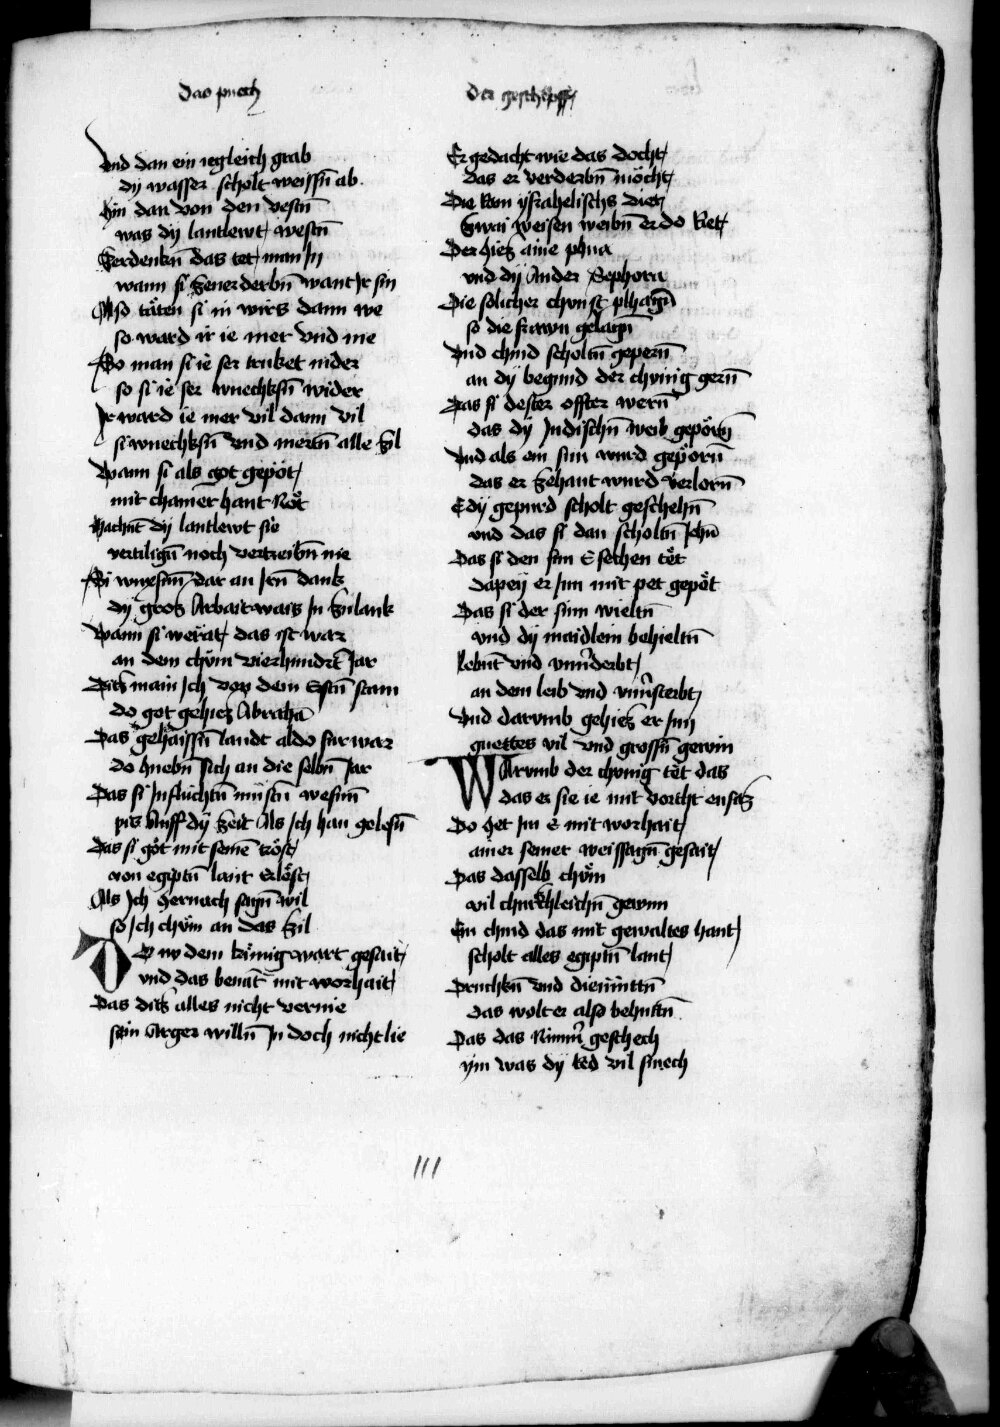 Das puech
Der geschepff
Vnd dan ein iegleich grab
dy wasser scholt weissn̄ ab
Hin dan von den vestn̄
was dy lantlewt westn̄
Ferdenkn̄ das tet man In
wann si gener derbn̄ want Ir sin
Also täten si in wirs dann we
so ward ir ie mer vnd me
So man si ie ser truket nider
so si ie ser wuechksn̄ wider
Ir ward ie mer vil dann vil
si wuechksn̄ vnd mertn̄ alle zil
Wann si als got gepot
mit chamer hant Not
Machñt dy lantlewt sie
vertilign̄ noch vertreibn̄ nie
Si wuxsenn dar an Irn̄ dank
dy gros Arbait wais In zu lank
Wann si werät das ist war
an dem chöm vierhundrt Jar
Ditz main Ich von dem Estn̄ stam
do got gehiez Abrahā
Das gehaissn̄ landt aldo fur war
do huebn̄ sich an die selbn̄ Jar
Das si Influchtn̄ müstn̄ wesenn
pis Auff dy zeit Als Ich han gelesn̄
Das si got mit seinē tröst
von egiptn̄ lant erlöst
Als Ich hernach sagn̄ wil
so Ich chöm an das zil
Do nw dem künig wart gesait
vnd das benāt mit worhait
Das ditz alles nicht vernie
sein Arger willn̄ In doch nicht lie
Er gedacht wie das docht
das er verderbn̄ möcht
Die kom ysrahelischs diet
zwai weisen weibn̄ er do Riet
Der hiez aine phua
vnd dy Ander Sephora
Die solicher chunst phlagn̄
so die frawn gelagn̄
Vnd chind scholtn̄ gepern̄
an dy begund der chunig gern̄
Das si dester offter wern̄
das dy Judischn̄ weib gepörn̄
Vnd als ein sun wurd gepörn̄
das er zehant wurd verlorn̄
E dy gepurd scholt geschehn̄
vnd das si dan scholtn̄ Jehn̄
Das si den sun E sechen töt
dapey er Inn mit pet gepöt
Das si der sunn wieltn̄
vnd dy maidlein behieltn̄
Lebñt vnd vnuderbt
an dem leib vnd vnusterbt
Vnd darvmb gehiez er Inn
guettes vil vnd grossn̄ gewin
Warvmb der chunig tet das
das er sie ie mit vorcht ensaz
Do het Im E mit worhait
ainer seiner weissagn̄ gesait
Das dasselb chöm
vil churkhleichn̄ gewun
Ein chind das mit gewaltes hant
scholt alles egiptn̄ lant
Druchkn̄ vnd diemüttn̄
das wolt er also behuttn̄
Das das Nimm̄ geschech
ym was dy red vil smech
III